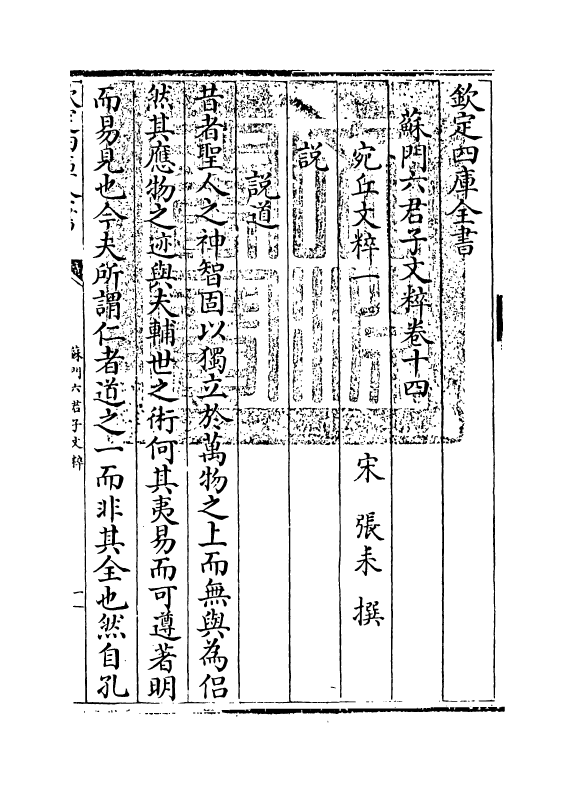 欽定四庫全書
蘇門六君子文粹卷十四
宛丘文粹一　宋　張耒　撰
說
說道
昔者聖人之神智固以獨立於萬物之上而無與為侣
然其應物之迹與夫輔世之術何其夷易而可遵著明
而易見也今夫所謂仁者道之一而非其全也然自孔
欽定四庫全書
蘇門六君子文粹
一